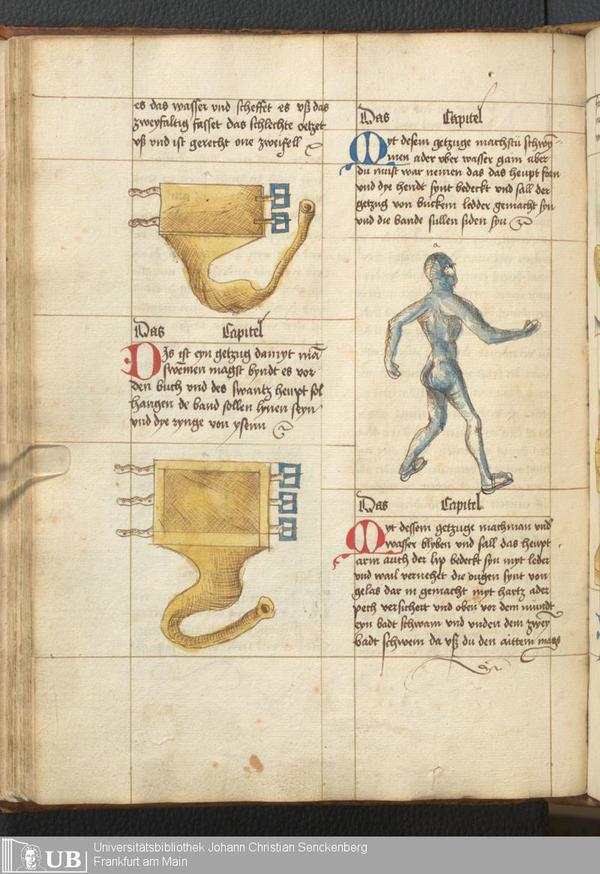 es das wasser vnd scheffet es vß das
zweyfaltig fasset das schlechte
vß vnd ist gerecht one zweifell
Das Capitel
Dis ist eyn getzug damyt man
swemen magst byndt es vor
den buch vnd des swantz heupt sol
hangen de band sollen lynen seyn
vnd dye rynge von ysenn
Das Capitel
Myt desem getzuge machstu schwy
men ader vber wasser gain aber
du must war nemen das das heupt
vnd dye hendt synt bedeckt vnd sall der
getzug von buckem ledder gemacht syn
vnd die bande sullen siden syn
a
Das Capitel
Myt dessem getzuge mach man vnd
wasser blyben vnd sall das heupt
arm auch der lip bedeckt syn myt leder
vnd wail vernehet die ougen synt von
gelas dar in gemacht myt hartz ader
pech versichert vnd oben vor dem mundt
eyn badt schwam vnd vnden dem zwey
badt schwem da vß du den attem mags
UB
Universitätsbibliothek Johann Christian Senckenberg
Frankfurt am Main